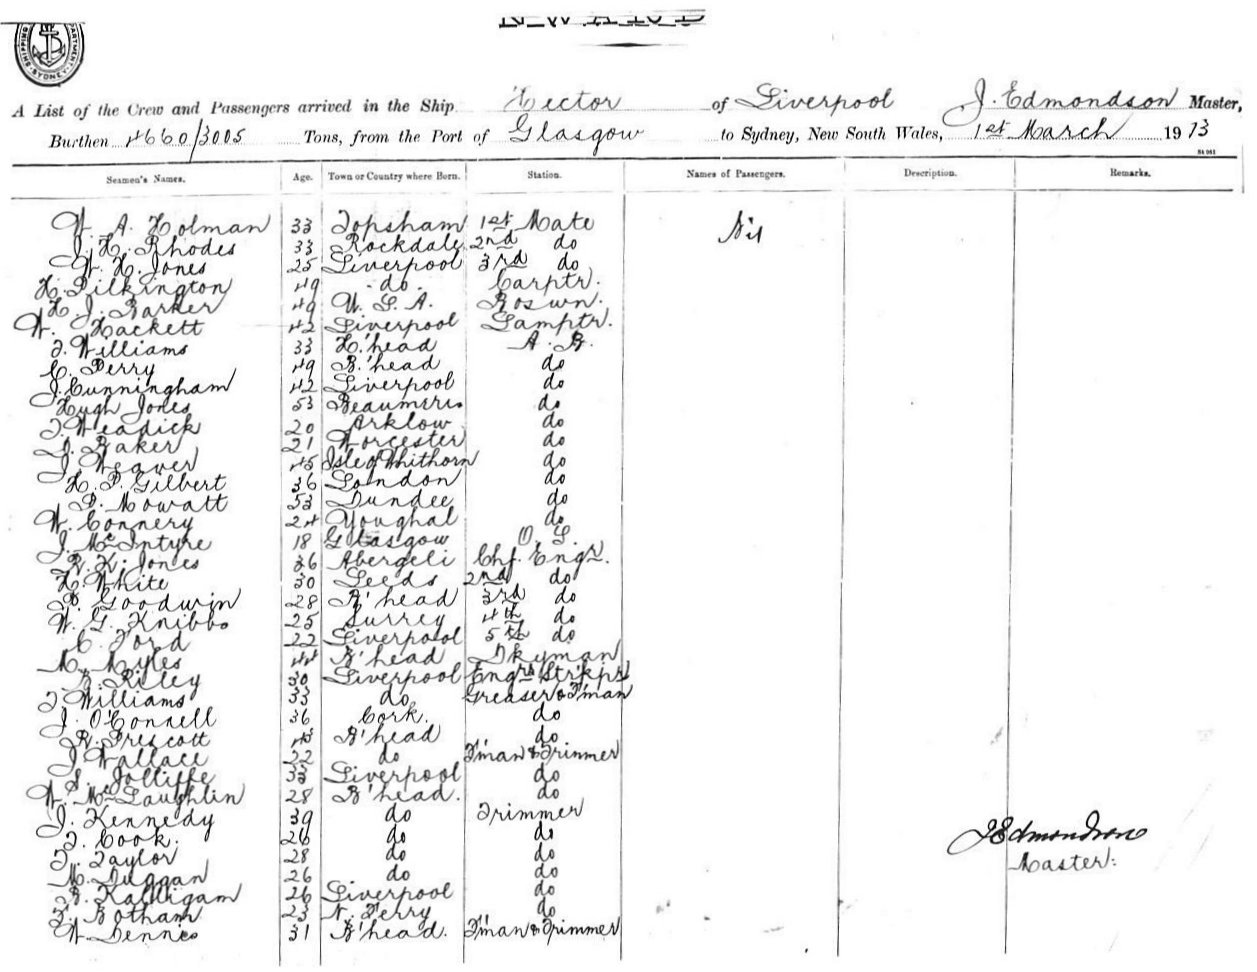 SHIPPING DEPARTMENT SYDNEY
A List of the Crew and Passengers arrived in the Ship Hector of Liverpool J. Edmondson Master,
Burthen 4660/3005 Tons, from the Port of Glasgow to Sydney, New South Wales, 1st March 1913
Seamen's Names. Age. Town or Country where Born. Station. Names of Passengers. Description. Remarks.
W. A. Holman 33 Topsham 1st Mate Nil
J. H. Rhodes 33 Rockdale 2nd do
W. H. Jones 25 Liverpool 3rd do
H. Pilkington 49 do. Carptr.
H. J. Barker 49 U. S. A. Boswn.
W. Hackett 42 Liverpool Lamptr.
J. Williams 33 H'head A. B.
C. Perry 49 B'head do
J. Cunningham 42 Liverpool do
Hugh Jones 53 Beaumeris do
J. Weadick 20 Arklow do
J. Baker 21 Worcester do
J. Weaver 45 Isle of Whithorn do
H. P. Gilbert 36 London do
D. Mowatt 53 Dundee do
W. Connery 24 Youghal do
J. McIntyre 18 Glasgow O. S.
R. H. Jones 36 Abergeli Chf. Engr.
H. White 30 Leeds 2nd do
P. Goodwin 28 B'head 3rd do
W. G. Knibbs 25 Surrey 4th do
C. Ford 22 Liverpool 5th do
M. Myles 44 B'head Dkyman
B. Riley 30 Liverpool Engrs Strkpr
J. Williams 33 do Greaser & F'man
J. O'Connell 36 Cork. do
R. Prescott B'head do
J. Wallace 22 do F'man & Trimmer
S. Jolliffe 33 Liverpool do
W. McLaughlin 28 B'head. do
J. Kennedy 39 do Trimmer
J. Cook. 26 do do J Edmondson
T. Taylor 28 do do Master.
M. Duggan 26 do do
B. 26 Liverpool do
F. Botham 23 N. Ferry do
W. Dennis 31 B'head. F'man & Trimmer